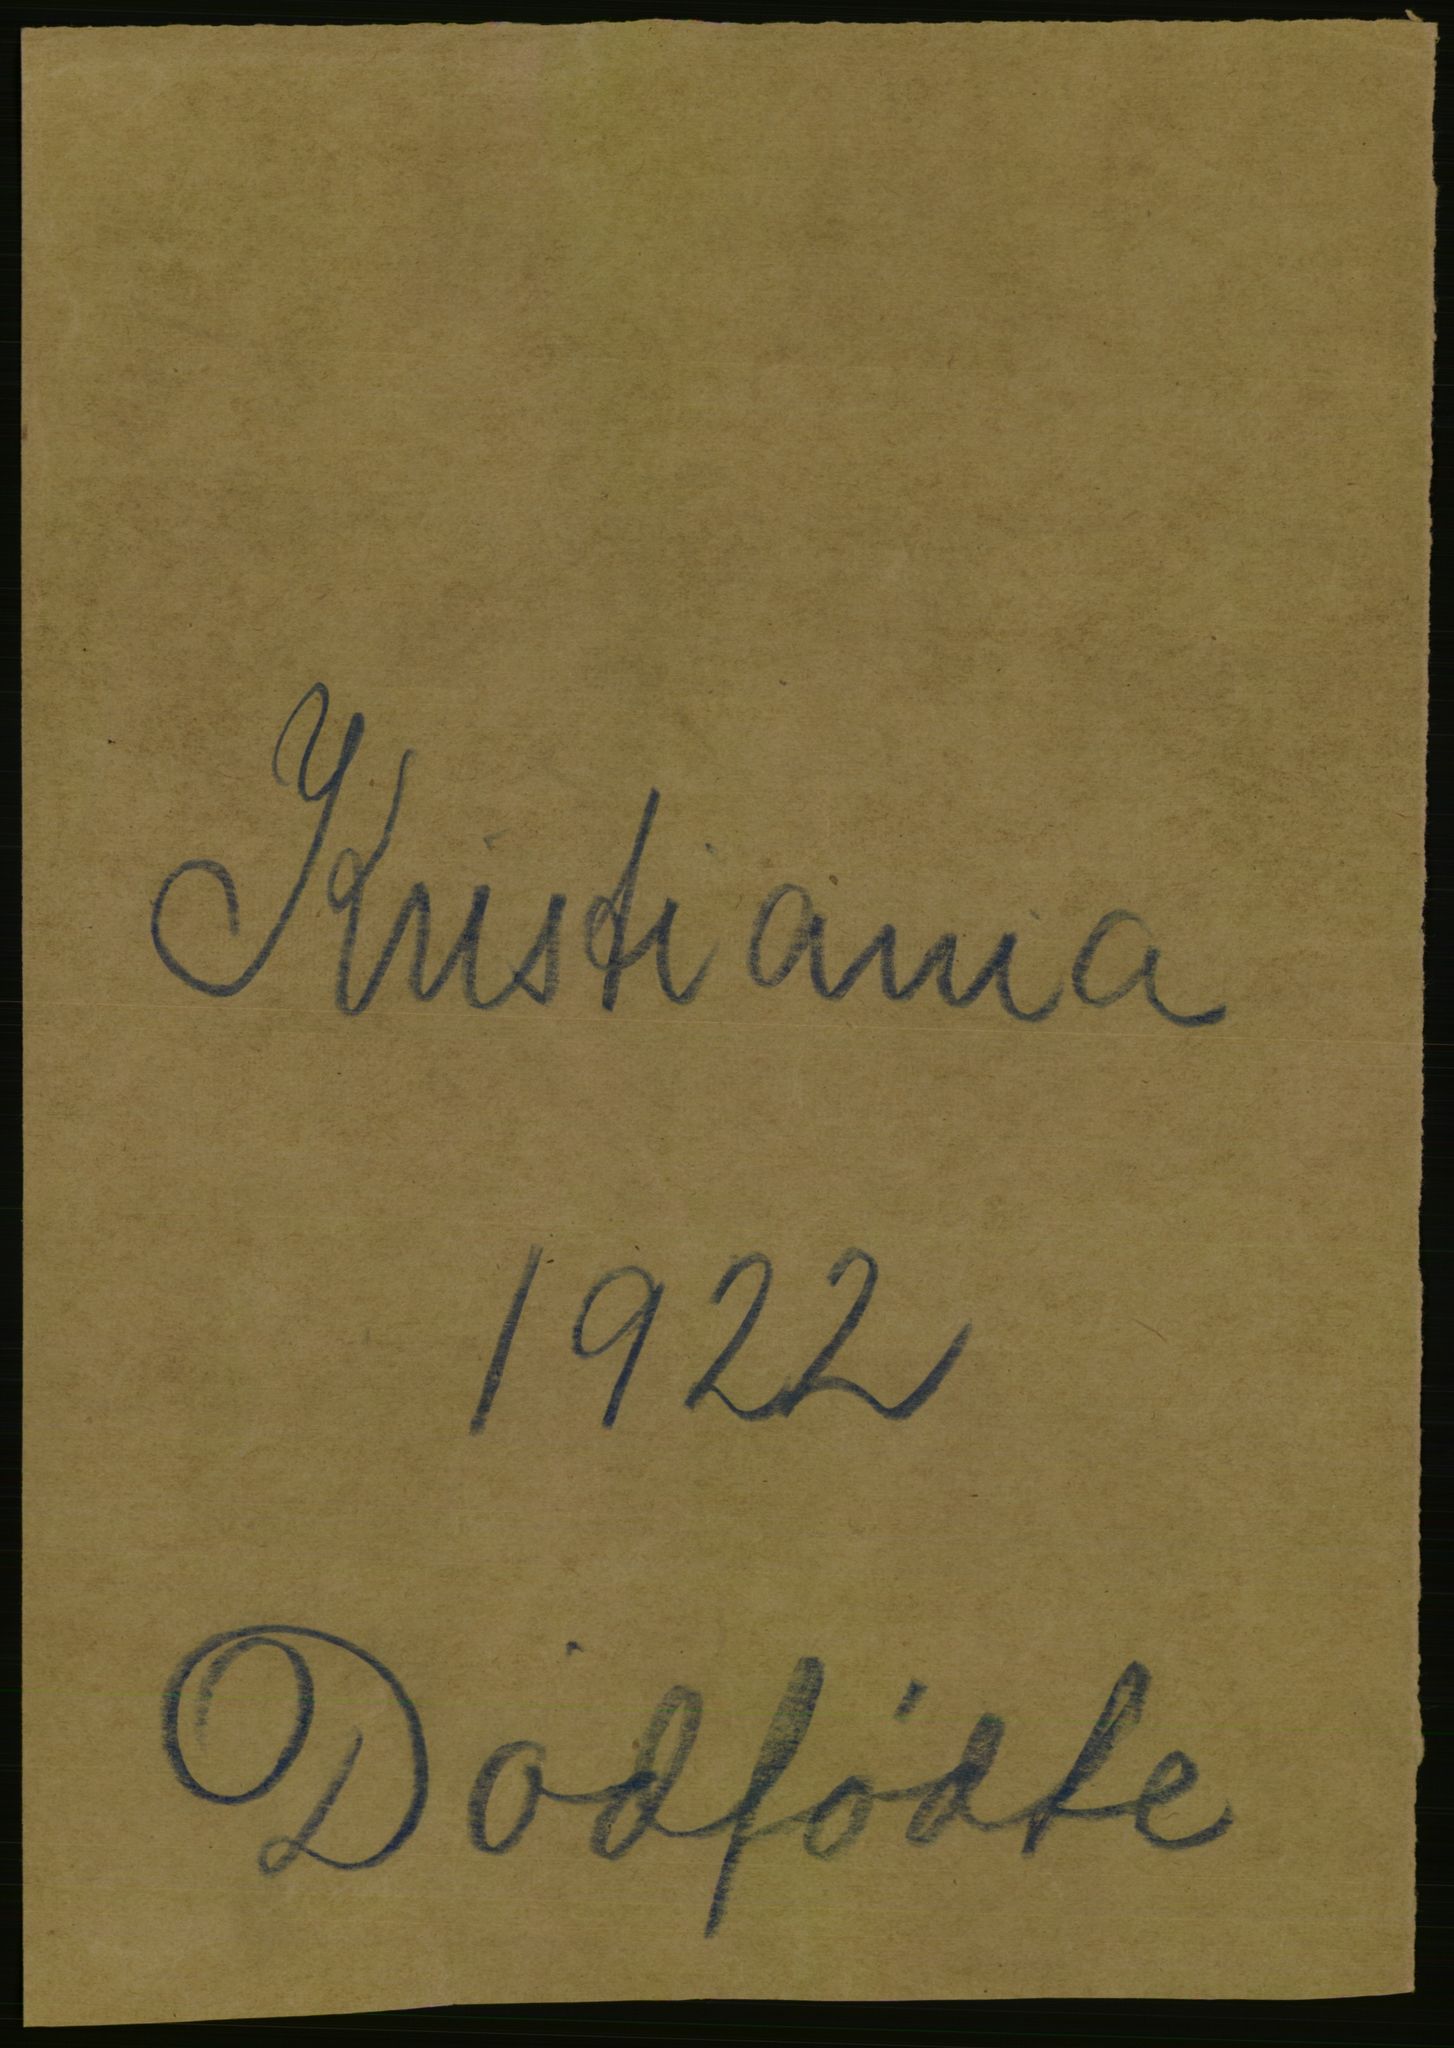 Kristiania
1922
Dödfödte